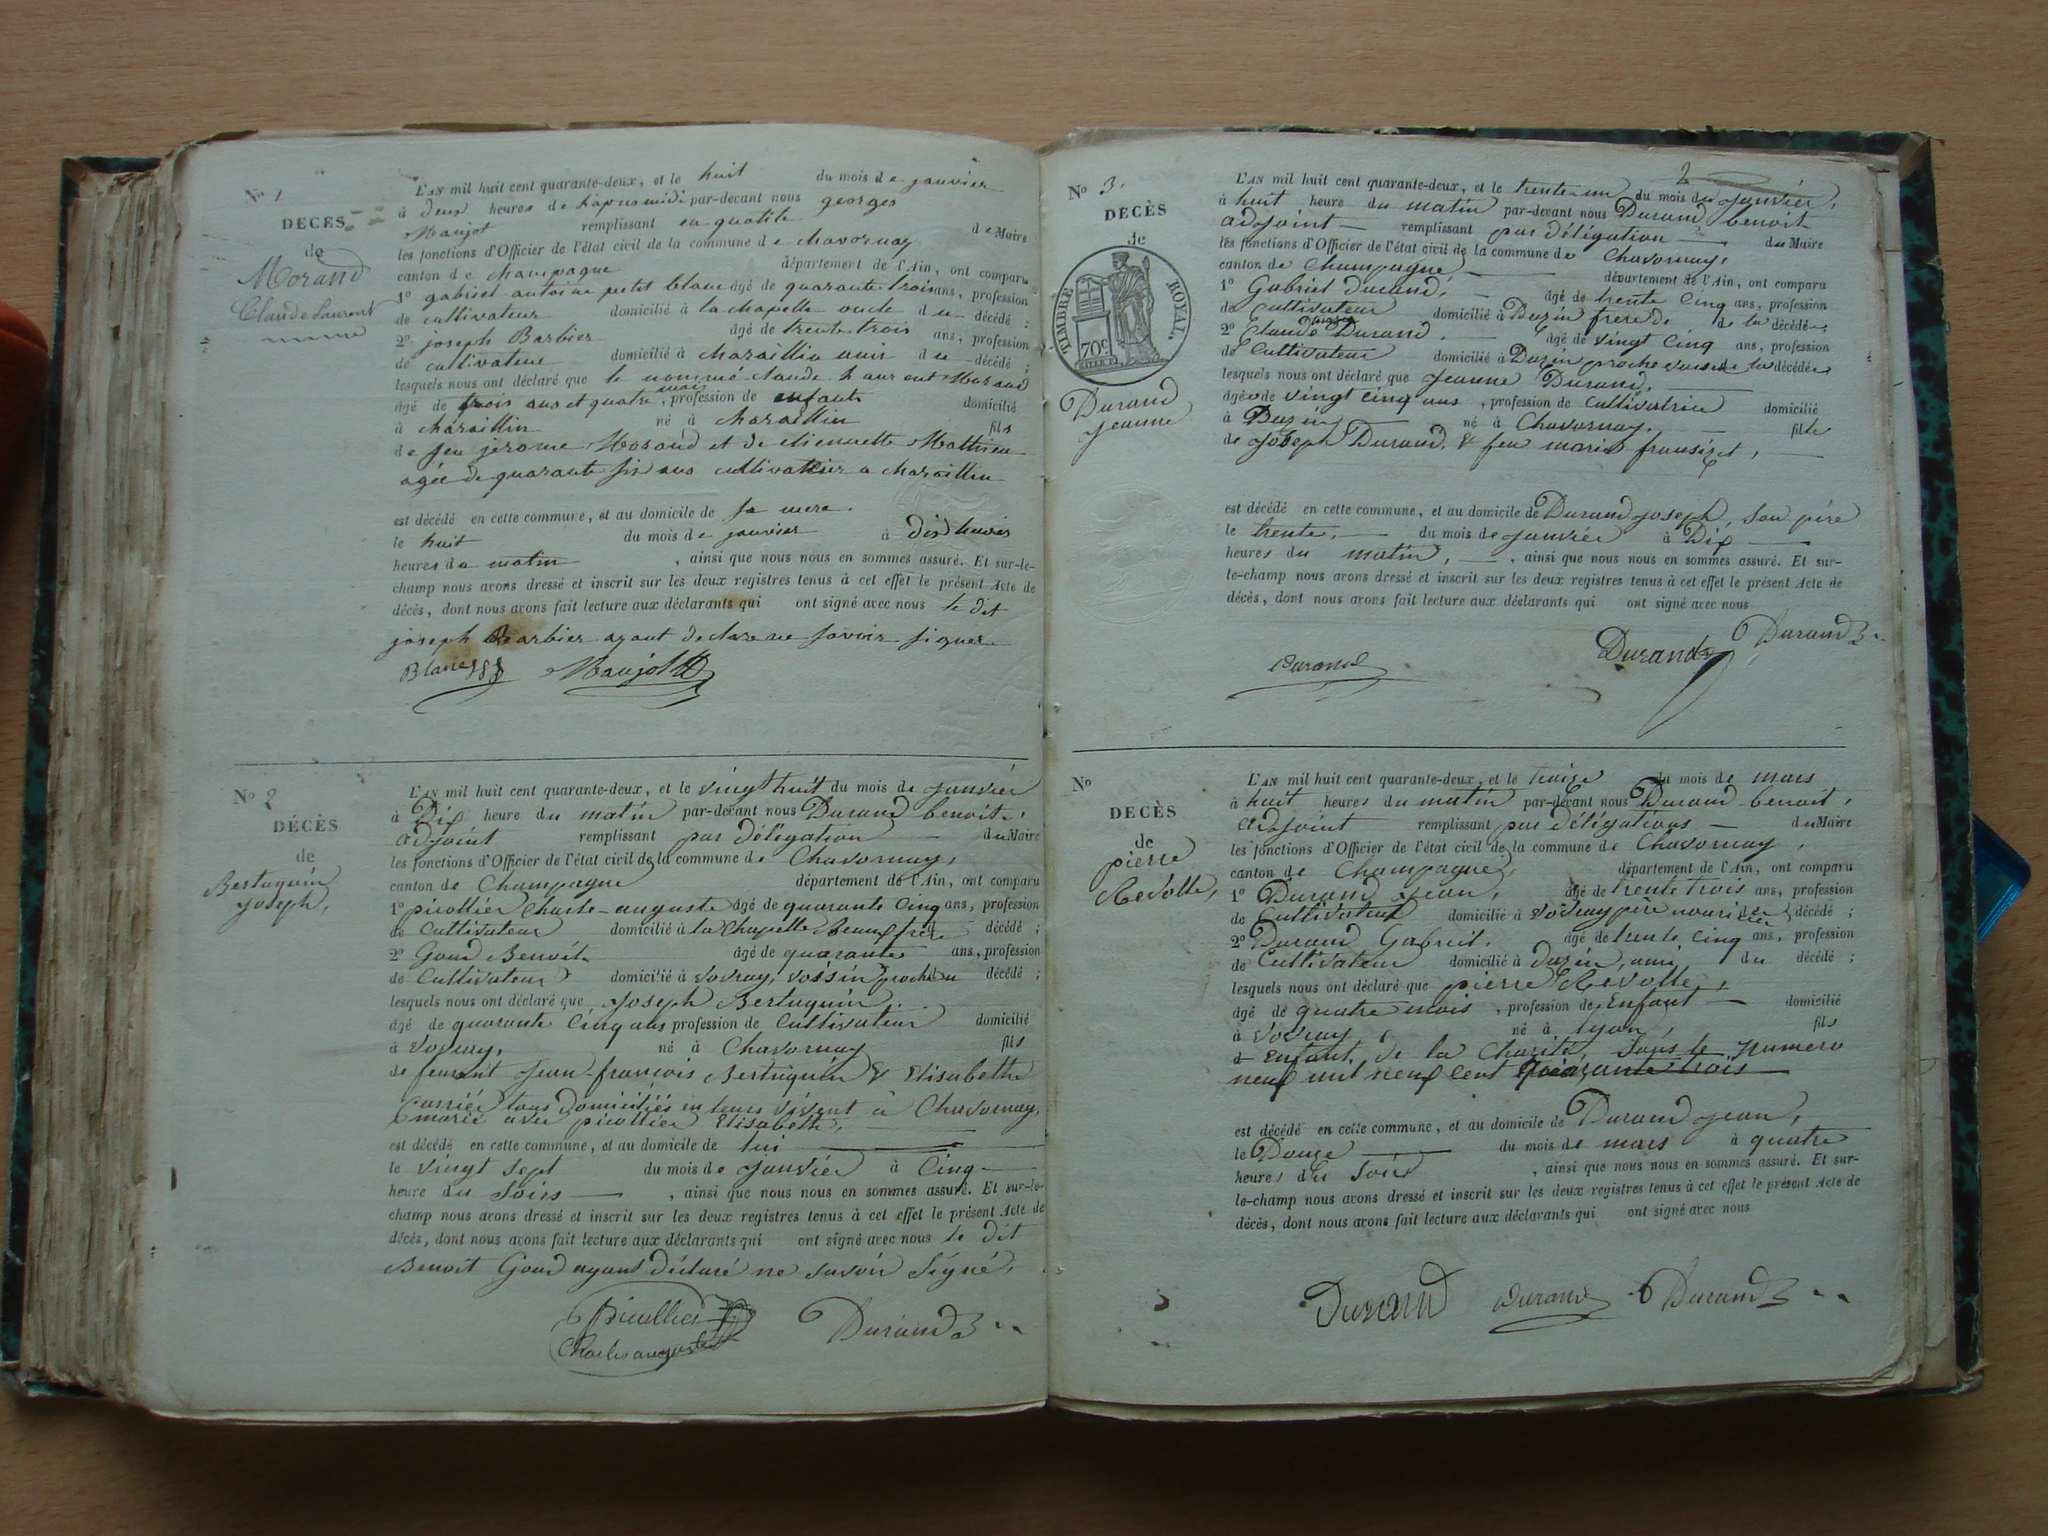 No 1
DECES
de
Morand
Claude Laurent
L'AN mil huit cent quarante-deux, et le huit du mois de janvier
à deux heures de par-devant nous georges
Maujot remplissant en qualité de Maire
les fonctions d'Officier de l'état civil de la commune de chavornay
canton de champagne département de l'Ain, ont comparu
1° gabriel antoine petit blanc âgé de quarante trois ans, profession
de cultivateur domicilié à la chapelle oncle du décédé ;
2° joseph Barbier âgé de trente trois ans, profession
de cultivateur domicilié à charaillin ami du décédé ;
lesquels nous ont déclaré que le nommé claude laurent Morand
âgé de trois ans et quatre mois, profession de enfant domicilié
à charaillin né à charaillin fils
de feu jerome Morand et de etiennette Mathieu
agée de quarante six ans a charaillin
est décédé en cette commune, et au domicile de sa mere
le huit du mois de janvier à dix heures
heures du matin, ainsi que nous nous en sommes assuré. Et sur-le-
champ nous avons dressé et inscrit sur les deux registres tenus à cet effet le présent Acte de
décès, dont nous avons fait lecture aux déclarants qui ont signé avec nous le dit
joseph Barbier ayant declare ne savoir signer
Maujot
No 2
DÉCÈS
de
Bertuquin
joseph,
L'AN mil huit cent quarante-deux, et le vingt huit du mois de janvier
à Dix heure du matin par-devant nous Durand benoit,
adjoint remplissant par délégation du Maire
les fonctions d'Officier de l'état civil de la commune de Chavornay,
canton de Champagne département de l'Ain, ont comparu
1° picollier Charle-auguste âgé de quarante cinq ans, profession
de cultivateur domicilié à la Chapelle beaux frère décédé ;
2° Goud Benoit âgé de quarante ans, profession
de Cultivateur domicilié à vovray, vossin proche du décédé ;
lesquels nous ont déclaré que Joseph Bertuquin,
âgé de quarante Cinq ans profession de Cultivateur domicilié
à vovray, né à Chavornay fils
de jean-françois Bertuquin & Elisabeth
Carrier tous domiciliés en leurs vivent à Chavornay,
marié avec picollier Elisabeth,
est décédé en cette commune, et au domicile de lui
le vingt sept du mois de janvier à Cinq
heure du soirs, ainsi que nous nous en sommes assuré. Et sur-le-
champ nous avons dressé et inscrit sur les deux registres tenus à cet effet le présent Acte de
décès, dont nous avons fait lecture aux déclarants qui ont signé avec nous le dit
Benoit Goud ayant déclaré ne savoir signé,
Picollier Durand
Charles auguste
2
No 3.
DECÈS
de
TIMBRE ROYAL
70c
Durand
jeanne
L'AN mil huit cent quarante-deux, et le trente-un du mois du janvier,
à huit heure du matin par-devant nous Durand benoit
adjoint remplissant par délégation du Maire
les fonctions d'Officier de l'état civil de la commune de Chavornay,
canton de Champagne, département de l'Ain, ont comparu
1° Gabriel durand, âgé de trente Cinq ans, profession
de cultivateur domicilié à Duzin frere de de la décédé ;
2° Claude Durand âgé de vingt Cinq ans, profession
de Cultivateur domicilié à Duzin proche de la décédée
lesquels nous ont déclaré que jeanne Durand,
âgée de vingt cinq ans, profession de Cultivatrice domicilié
à Duzin né à Chavornay. fille
de joseph Durand, & feu
est décédé en cette commune, et au domicile de Durand joseph, son père
le trente, du mois de janvier à Dix
heures du matin, ainsi que nous nous en sommes assuré. Et sur-
le-champ nous avons dressé et inscrit sur les deux registres tenus à cet effet le présent Acte de
décès, dont nous avons fait lecture aux déclarants qui ont signé avec nous
Durand Durand Durand
No
DECÈS
de
pierre
Revolle,
L'AN mil huit cent quarante-deux, et le treize du mois de mars
à huit heures du matin par-devant nous Durand benoit,
adjoint remplissant par délégations du Maire
les fonctions d'Officier de l'état civil de la commune de Chavornay,
canton de Champagne, département de l'Ain, ont comparu
1° Durand jean, âgé de trente trois ans, profession
de Cultivateur domicilié à vovray père nouricier décédé ;
2° Durand Gabriel. âgé de trente cinq ans, profession
de Cultivateur domicilié à duzin, ami du décédé ;
lesquels nous ont déclaré que pierre Revolle,
âgé de quatre mois, profession de Enfant domicilié
à vovray, né à lyon, fils
d Enfant de la Charité, sous le Numero
neuf mil neuf cent quarante trois
est décédé en cette commune, et au domicile de Durand jean,
le Douze du mois de mars à quatre
heures du soir, ainsi que nous nous en sommes assuré. Et sur-
le-champ nous avons dressé et inscrit sur les deux registres tenus à cet effet le présent Acte de
décès, dont nous avons fait lecture aux déclarants qui ont signé avec nous
Durand Durand Durand